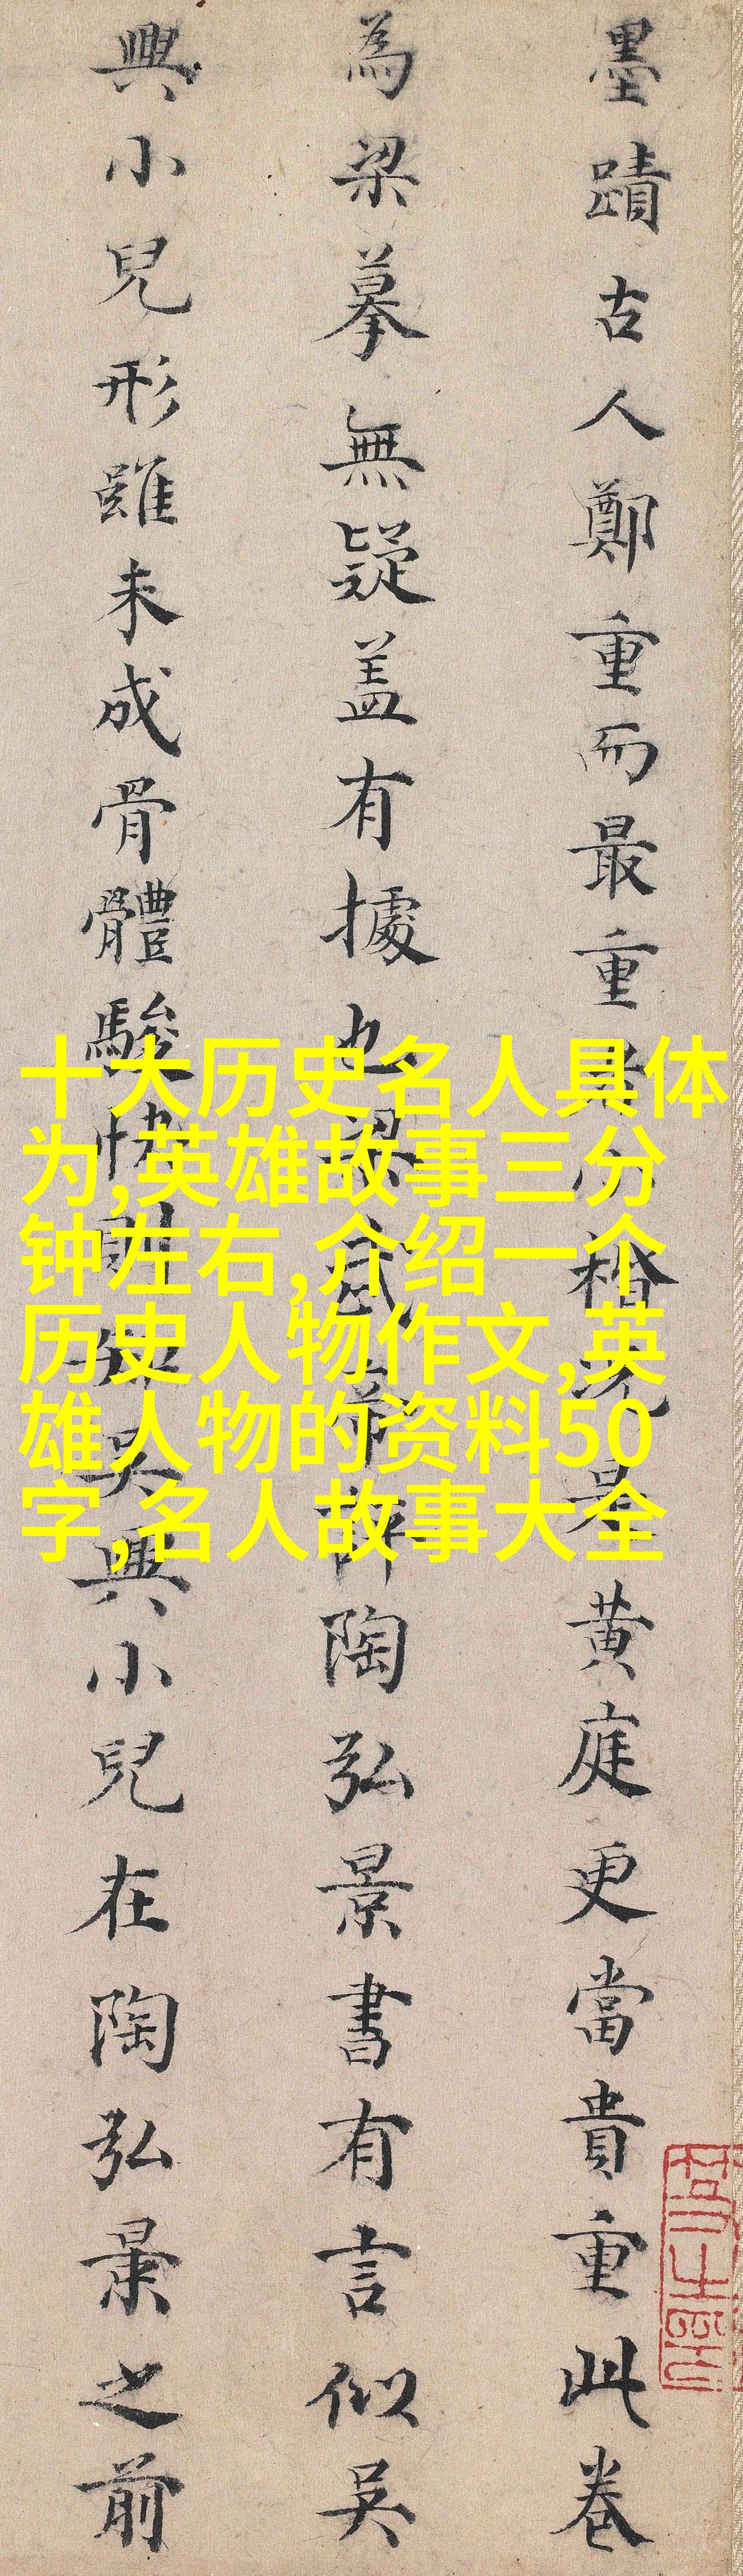 墨蹟古人鄭重而最重小楷況是黄庭更當貴重此卷
為梁摹無疑盖有據也梁武帝評陶弘景書有言似吳
興小兒形雖未成骨體駿快則知吳興小兒在陶弘景之前
十大历史名人具体
为,英雄故事三分
钟左右,介绍一个
历史人物作文,英
雄人物的资料50
字,名人故事大全